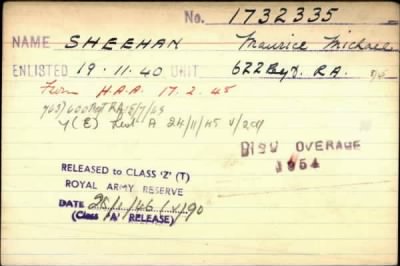 No. 1732335
NAME SHEEHAN Maurice Michael
ENLISTED 19.11.40 UNIT 622 Byt. R.A.
From H.A.A. 17.2.45
Y(E) List A 24/11/45
Disch OVERAGE
1954
RELEASED to CLASS 'Z' (T)
ROYAL ARMY RESERVE
DATE 28/1/46
(Class 'A' RELEASE)